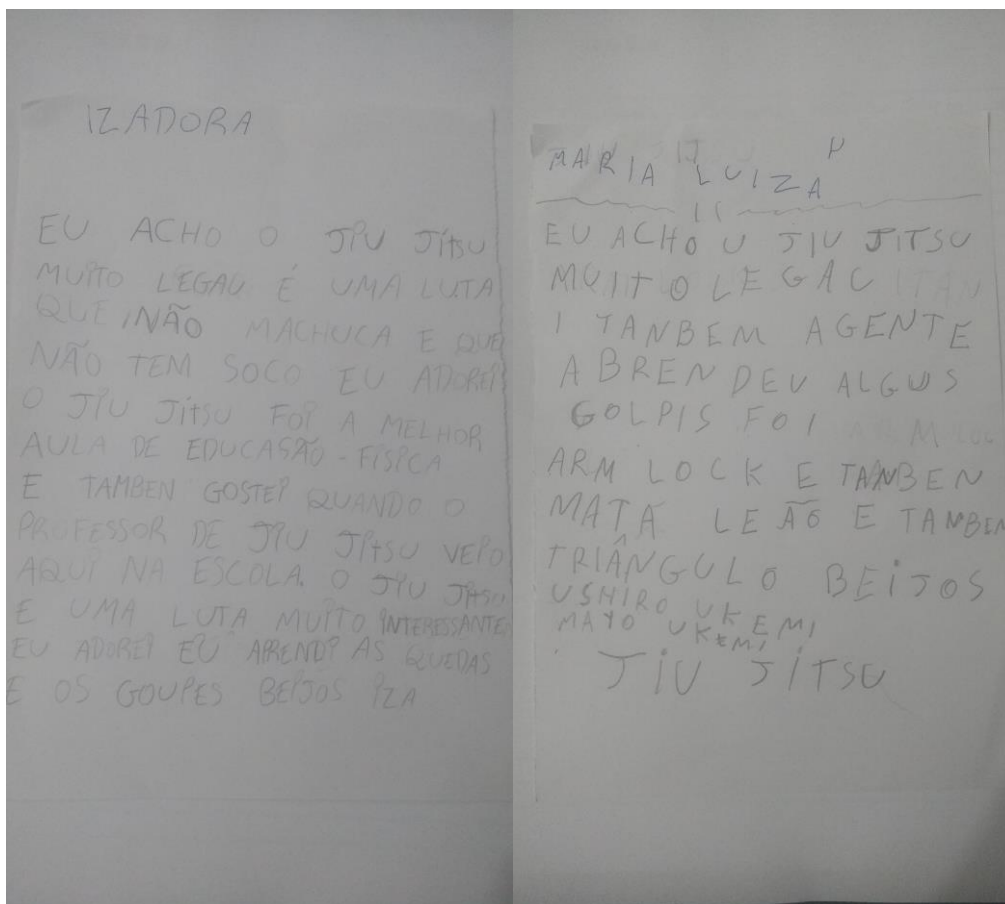 IZADORA
EU ACHO O JIU JÍtSU
MUITO LEGAU É UMA LUTA
QUE NÃO MACHUCA E QUE
NÃO TEM SOCO EU ADOREI
O JIU JítSU FOI A MELHOR
AULA DE EDUCASÃO-FÍSICA
E TAMBEN GOSTEI QUANDO O
PROFESSOR DE JIU JItSU VEIO
AQUI NA ESCOLA. O JIU JItSU
E UMA LUTA MUITO INTERESSANTE
EU ADOREI EU APRENDI AS QUEDAS
E OS GOUPES BEIJOS IZA
MARIA LUIZA
EU ACHO U JIU JITSU
MUITO LEGAL
I TANBEM AGENTE
ABRENDEU ALGUS
GOLPIS FOI
ARM LOCK E TANBEN
MATA LEÃO E TANBEN
TRIÂNGULO BEIJOS
USHIRO UKEMI
MAYO UKEMI
JIU JÍTSU